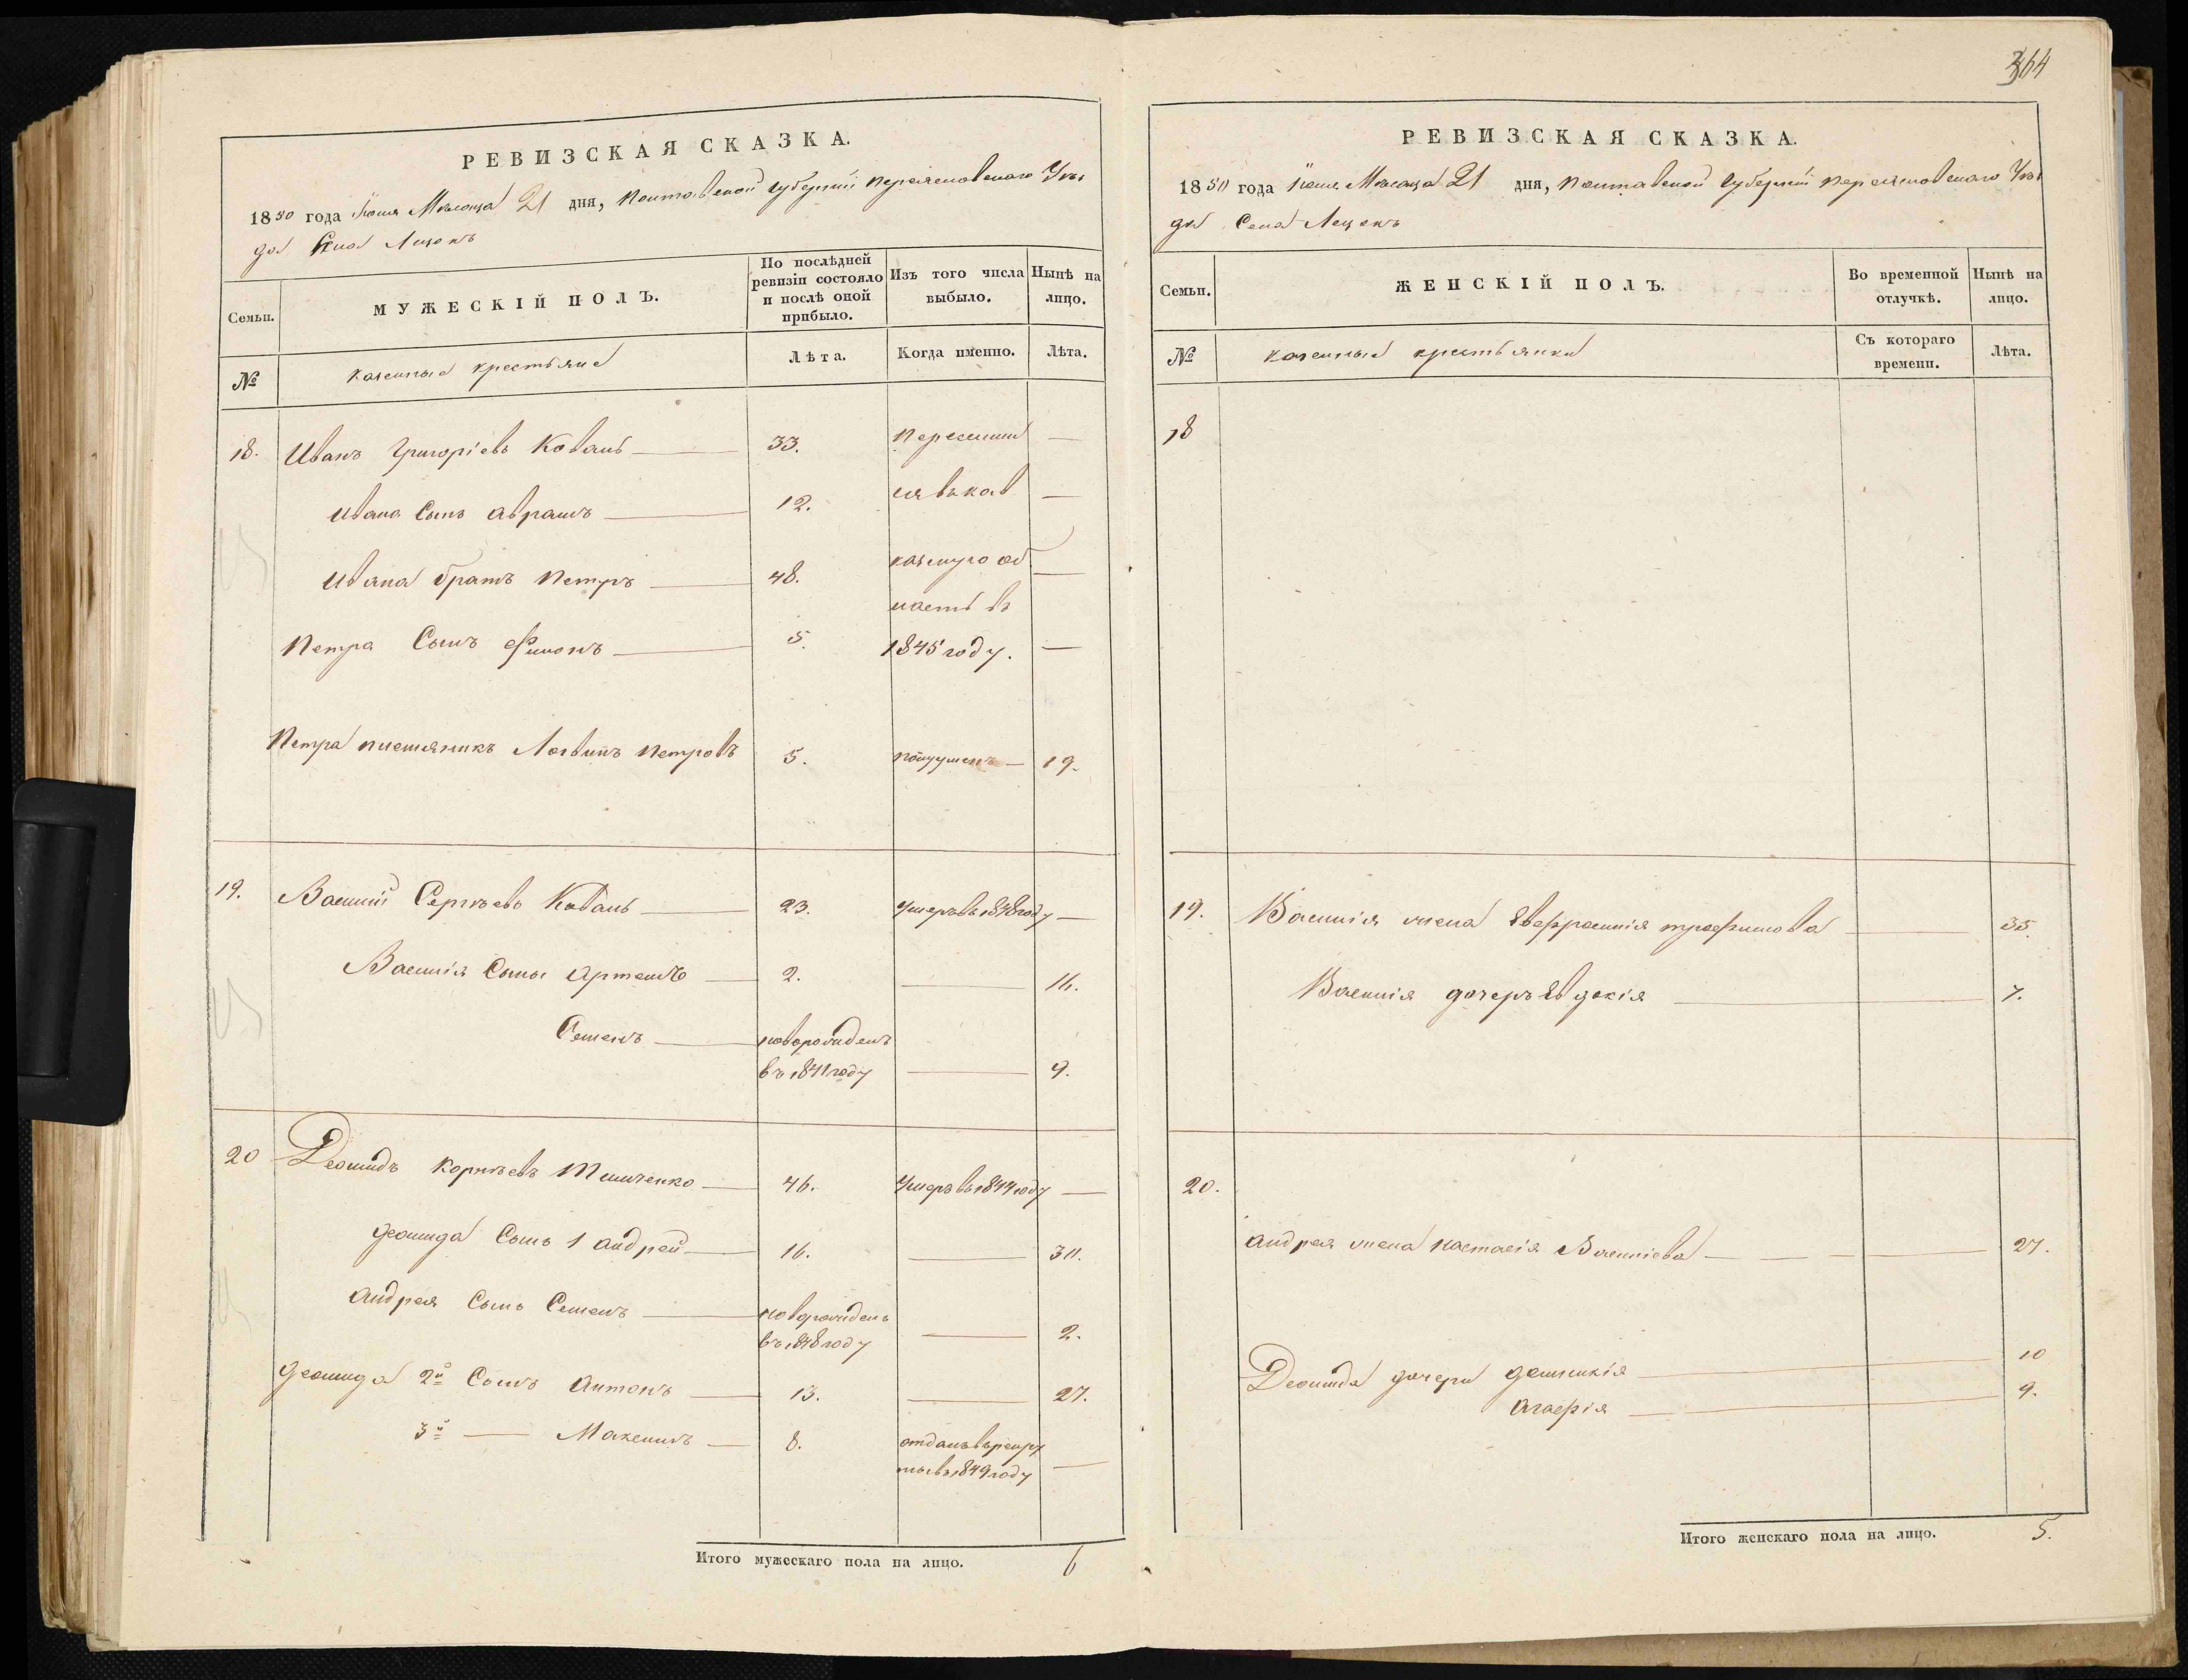 364
РЕВИЗСКАЯ СКАЗКА.
1850 года Іюня Мѣсяца 21 дня, Полтавской губерніи Переяславскаго Уѣз
да Села Лецокъ
Семьи.
МУЖЕСКІЙ ПОЛЪ.
По послѣдней ревизіи состояло и послѣ оной прибыло.
Изъ того числа выбыло.
Нынѣ на лицо.
№
казенные крестьяне
Лѣта.
Когда именно.
Лѣта.
18. Иванъ Григоріевъ Коваль 33. Пересели —
Ивана Сынъ Аврамъ 12. —
Ивана братъ Петръ 48. —
Петра Сынъ Филонъ 5. 1845 году. —
Петра племяникъ Логвинъ Петровъ 5. пополненъ 19.
19. Василій Сергѣевъ Коваль 23. Умеръ въ 1848 году —
Василія Сыны Артемъ 2. — 16.
Семенъ новорожденъ
въ 1841 году — 9.
20 Леонидъ Корнѣевъ 46. Умеръ въ 1844 году —
Сынъ 1 Андрей 16. — 30.
Андрея Сынъ Семенъ новорожденъ
въ 1848 году — 2.
2й Сынъ Антонъ 13. — 27.
3й — Максимъ 8. отданъ въ рекру
ты въ 1849 году —
Итого мужескаго пола на лицо. 6
РЕВИЗСКАЯ СКАЗКА.
1850 года Іюня Мѣсяца 21 дня, Полтавской губерніи Переяславскаго Уѣз
да Села Лецокъ
Семьи.
ЖЕНСКІЙ ПОЛЪ.
Во временной отлучкѣ.
Нынѣ на лицо.
№
казенные крестьянки
Съ котораго времени.
Лѣта.
18
19. Василія жена Евфросинія Трофимова 35.
Василія дочерь Евдокія 7.
20.
Андрея жена Настасія Василіева 27.
дочери 10
Агафія 9.
Итого женскаго пола на лицо. 5.